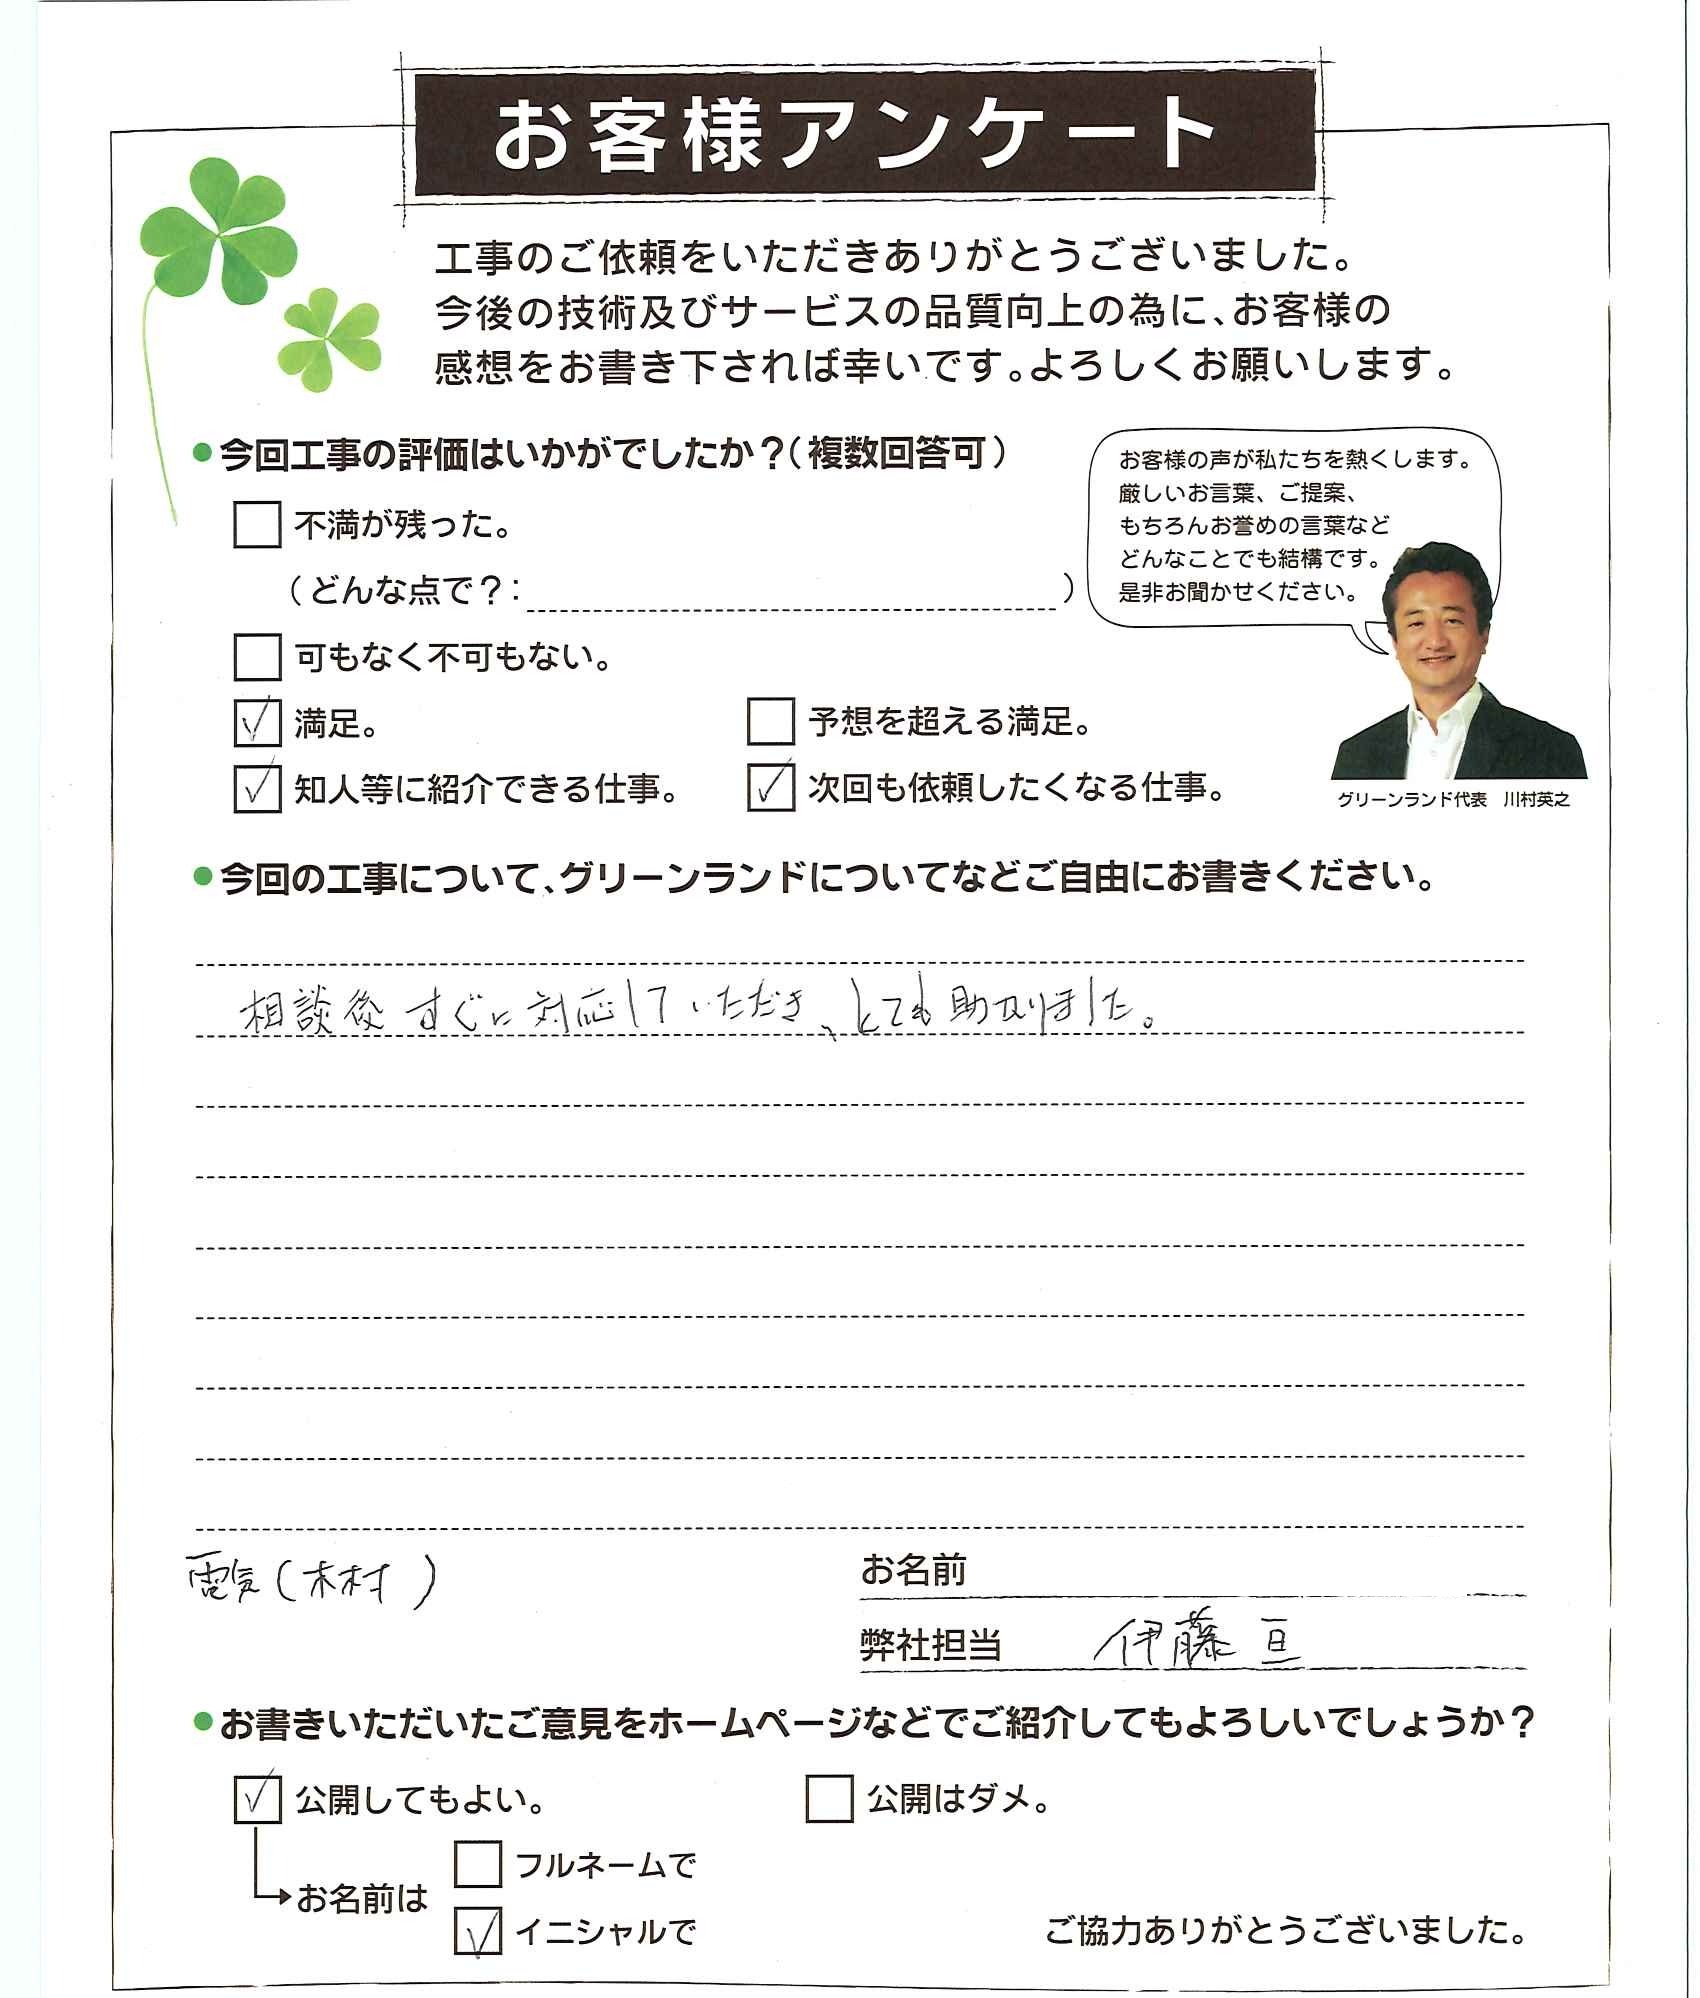 お客様アンケート
工事のご依頼をいただきありがとうございました。
今後の技術及びサービスの品質向上の為に、お客様の
感想をお書き下されば幸いです。よろしくお願いします。
●今回工事の評価はいかがでしたか？（複数回答可）
お客様の声が私たちを熱くします。
厳しいお言葉、ご提案、
もちろんお誉めの言葉など
どんなことでも結構です。
是非お聞かせください。
グリーンランド代表　川村英之
不満が残った。
（どんな点で？：　）
可もなく不可もない。
満足。　予想を超える満足。
知人等に紹介できる仕事。　次回も依頼したくなる仕事。
●今回の工事について、グリーンランドについてなどご自由にお書きください。
相談後すぐに対応していただき、とても助かりました。
電気（木村）
お名前
弊社担当　伊藤亘
●お書きいただいたご意見をホームページなどでご紹介してもよろしいでしょうか？
公開してもよい。　公開はダメ。
お名前は
フルネームで
イニシャルで
ご協力ありがとうございました。